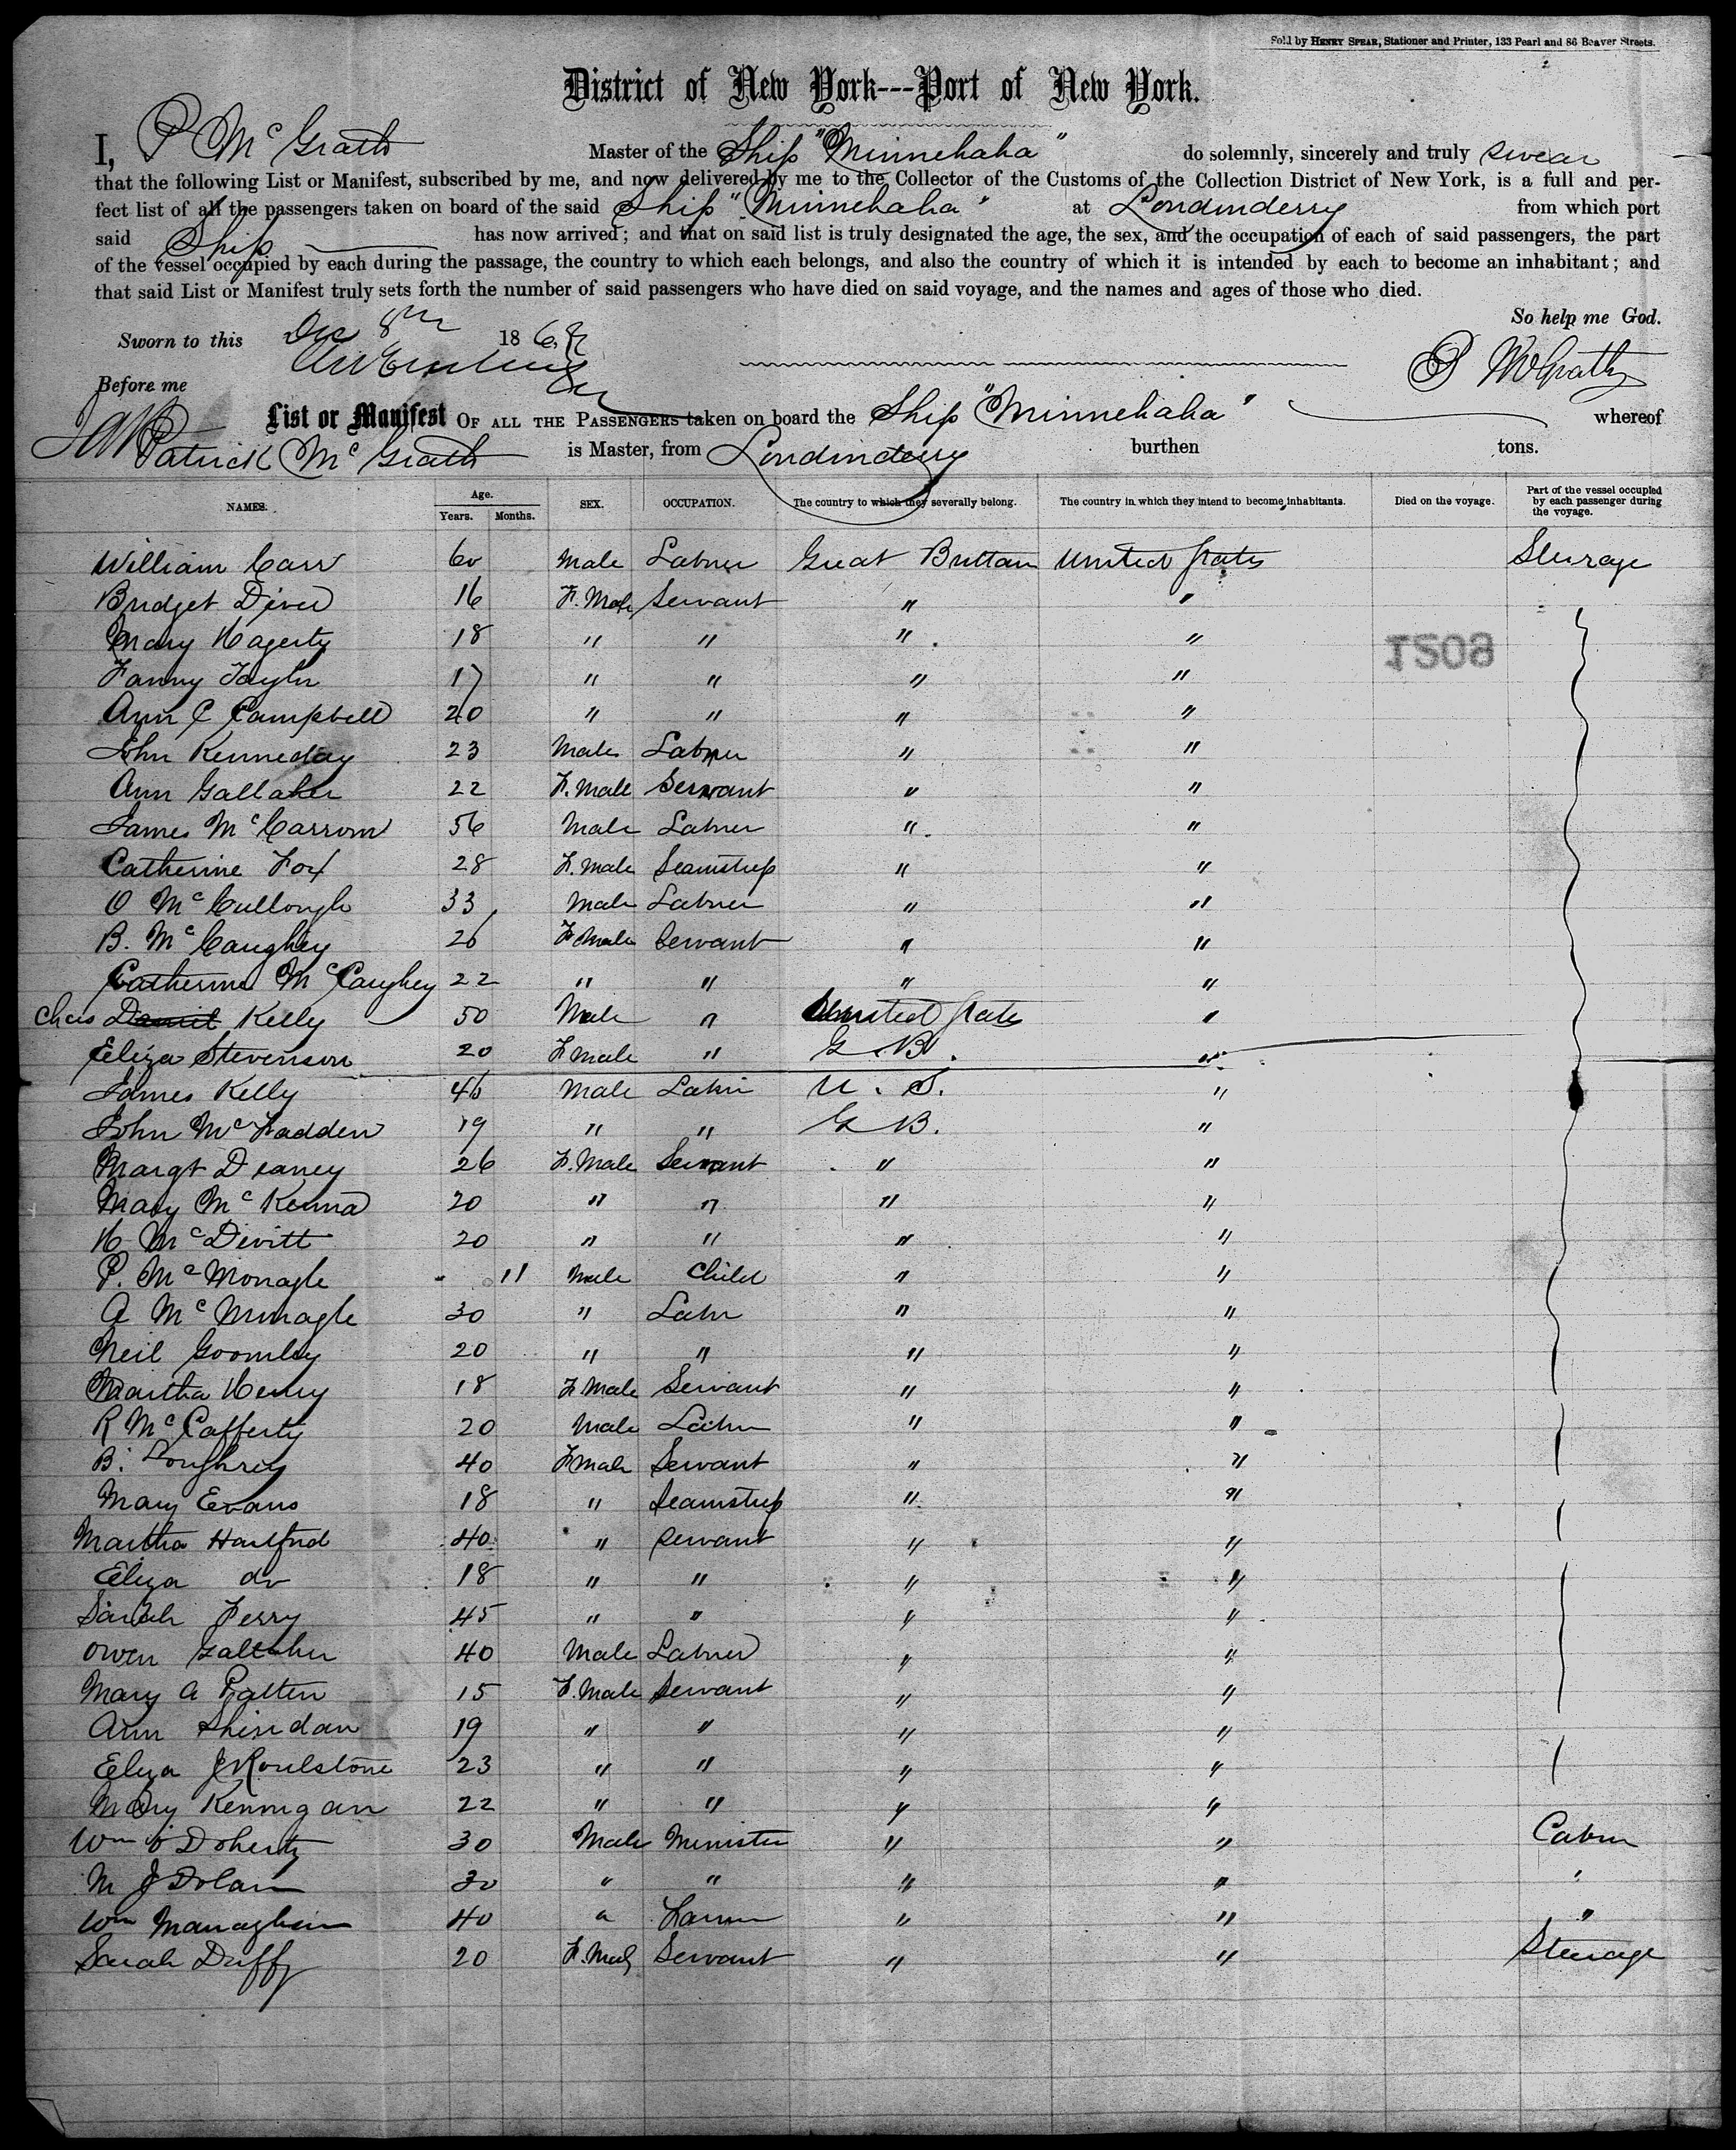 Sold by HENRY SPEAR, Stationer and Printer, 133 Pearl and 86 Beaver Streets.
District of New York---Port of New York.
I, P McGrath Master of the Ship "Minnehaha" do solemnly, sincerely and truly swear
that the following List or Manifest, subscribed by me, and now delivered by me to the Collector of the Customs of the Collection District of New York, is a full and per-
fect list of all the passengers taken on board of the said Ship "Minnehaha" at Londonderry from which port
said Ship has now arrived; and that on said list is truly designated the age, the sex, and the occupation of each of said passengers, the part
of the vessel occupied by each during the passage, the country to which each belongs, and also the country of which it is intended by each to become an inhabitant; and
that said List or Manifest truly sets forth the number of said passengers who have died on said voyage, and the names and ages of those who died.
So help me God.
Sworn to this Dec 8th 186
P McGrath
Before me
List or Manifest OF ALL THE PASSENGERS taken on board the Ship "Minnehaha" whereof
Patrick McGrath is Master, from Londonderry burthen tons.
NAMES. Age. Years. Months. SEX. OCCUPATION. The country to which they severally belong. The country in which they intend to become inhabitants. Died on the voyage. Part of the vessel occupied by each passenger during the voyage.
William Carr 60 Male Labrer Great Brittan United States Steerage
Bridget Diver 16 F. Male Servant " "
Mary Hagerty 18 " " " "
Fanny Taylor 17 " " " "
Ann C Campbell 20 " " " "
John Kenneday 23 Male Labrer " "
Ann Gallaher 22 F. Male Servant " "
James McCarron 56 Male Labrer " "
Catherine Fox 28 F. Male Seamstress " "
O McCullough 33 Male Labrer " "
B. McCaughey 26 F Male Servant " "
Catherine McCaughey 22 " " " "
Chas Daniel Kelly 50 Male " United States "
Eliza Stevenson 20 F male " G B. "
James Kelly 46 Male Labr U. S. "
John McFadden 19 " " G B. "
Margt Deaney 26 F. Male Servant " "
Mary McKenna 20 " " " "
H McDevitt 20 " " " "
P. McMonagle 11 Male Child " "
A McMonagle 30 " Labr " "
Neil Goomley 20 " " " "
Martha Henry 18 F Male Servant " "
R McCafferty 20 Male Labr " "
B. Loughrey 40 F Male Servant " "
Mary Evans 18 " Seamstress " "
Martha Hartford 40 " Servant " "
Eliza do 18 " " " "
Sarah Ferry 45 " " " "
Owen Gallaher 40 Male Labrer " "
Mary A Patten 15 F. Male Servant " "
Ann Sheridan 19 " " " "
Eliza J Roulstone 23 " " " "
Mary Kennigan 22 " " " "
Wm O Doherty 30 Male Minister " " Cabin
M J Dolan 30 " " " " "
Wm Managhan 40 " Farmer " " "
Sarah Duffy 20 F. Male Servant " " Steerage